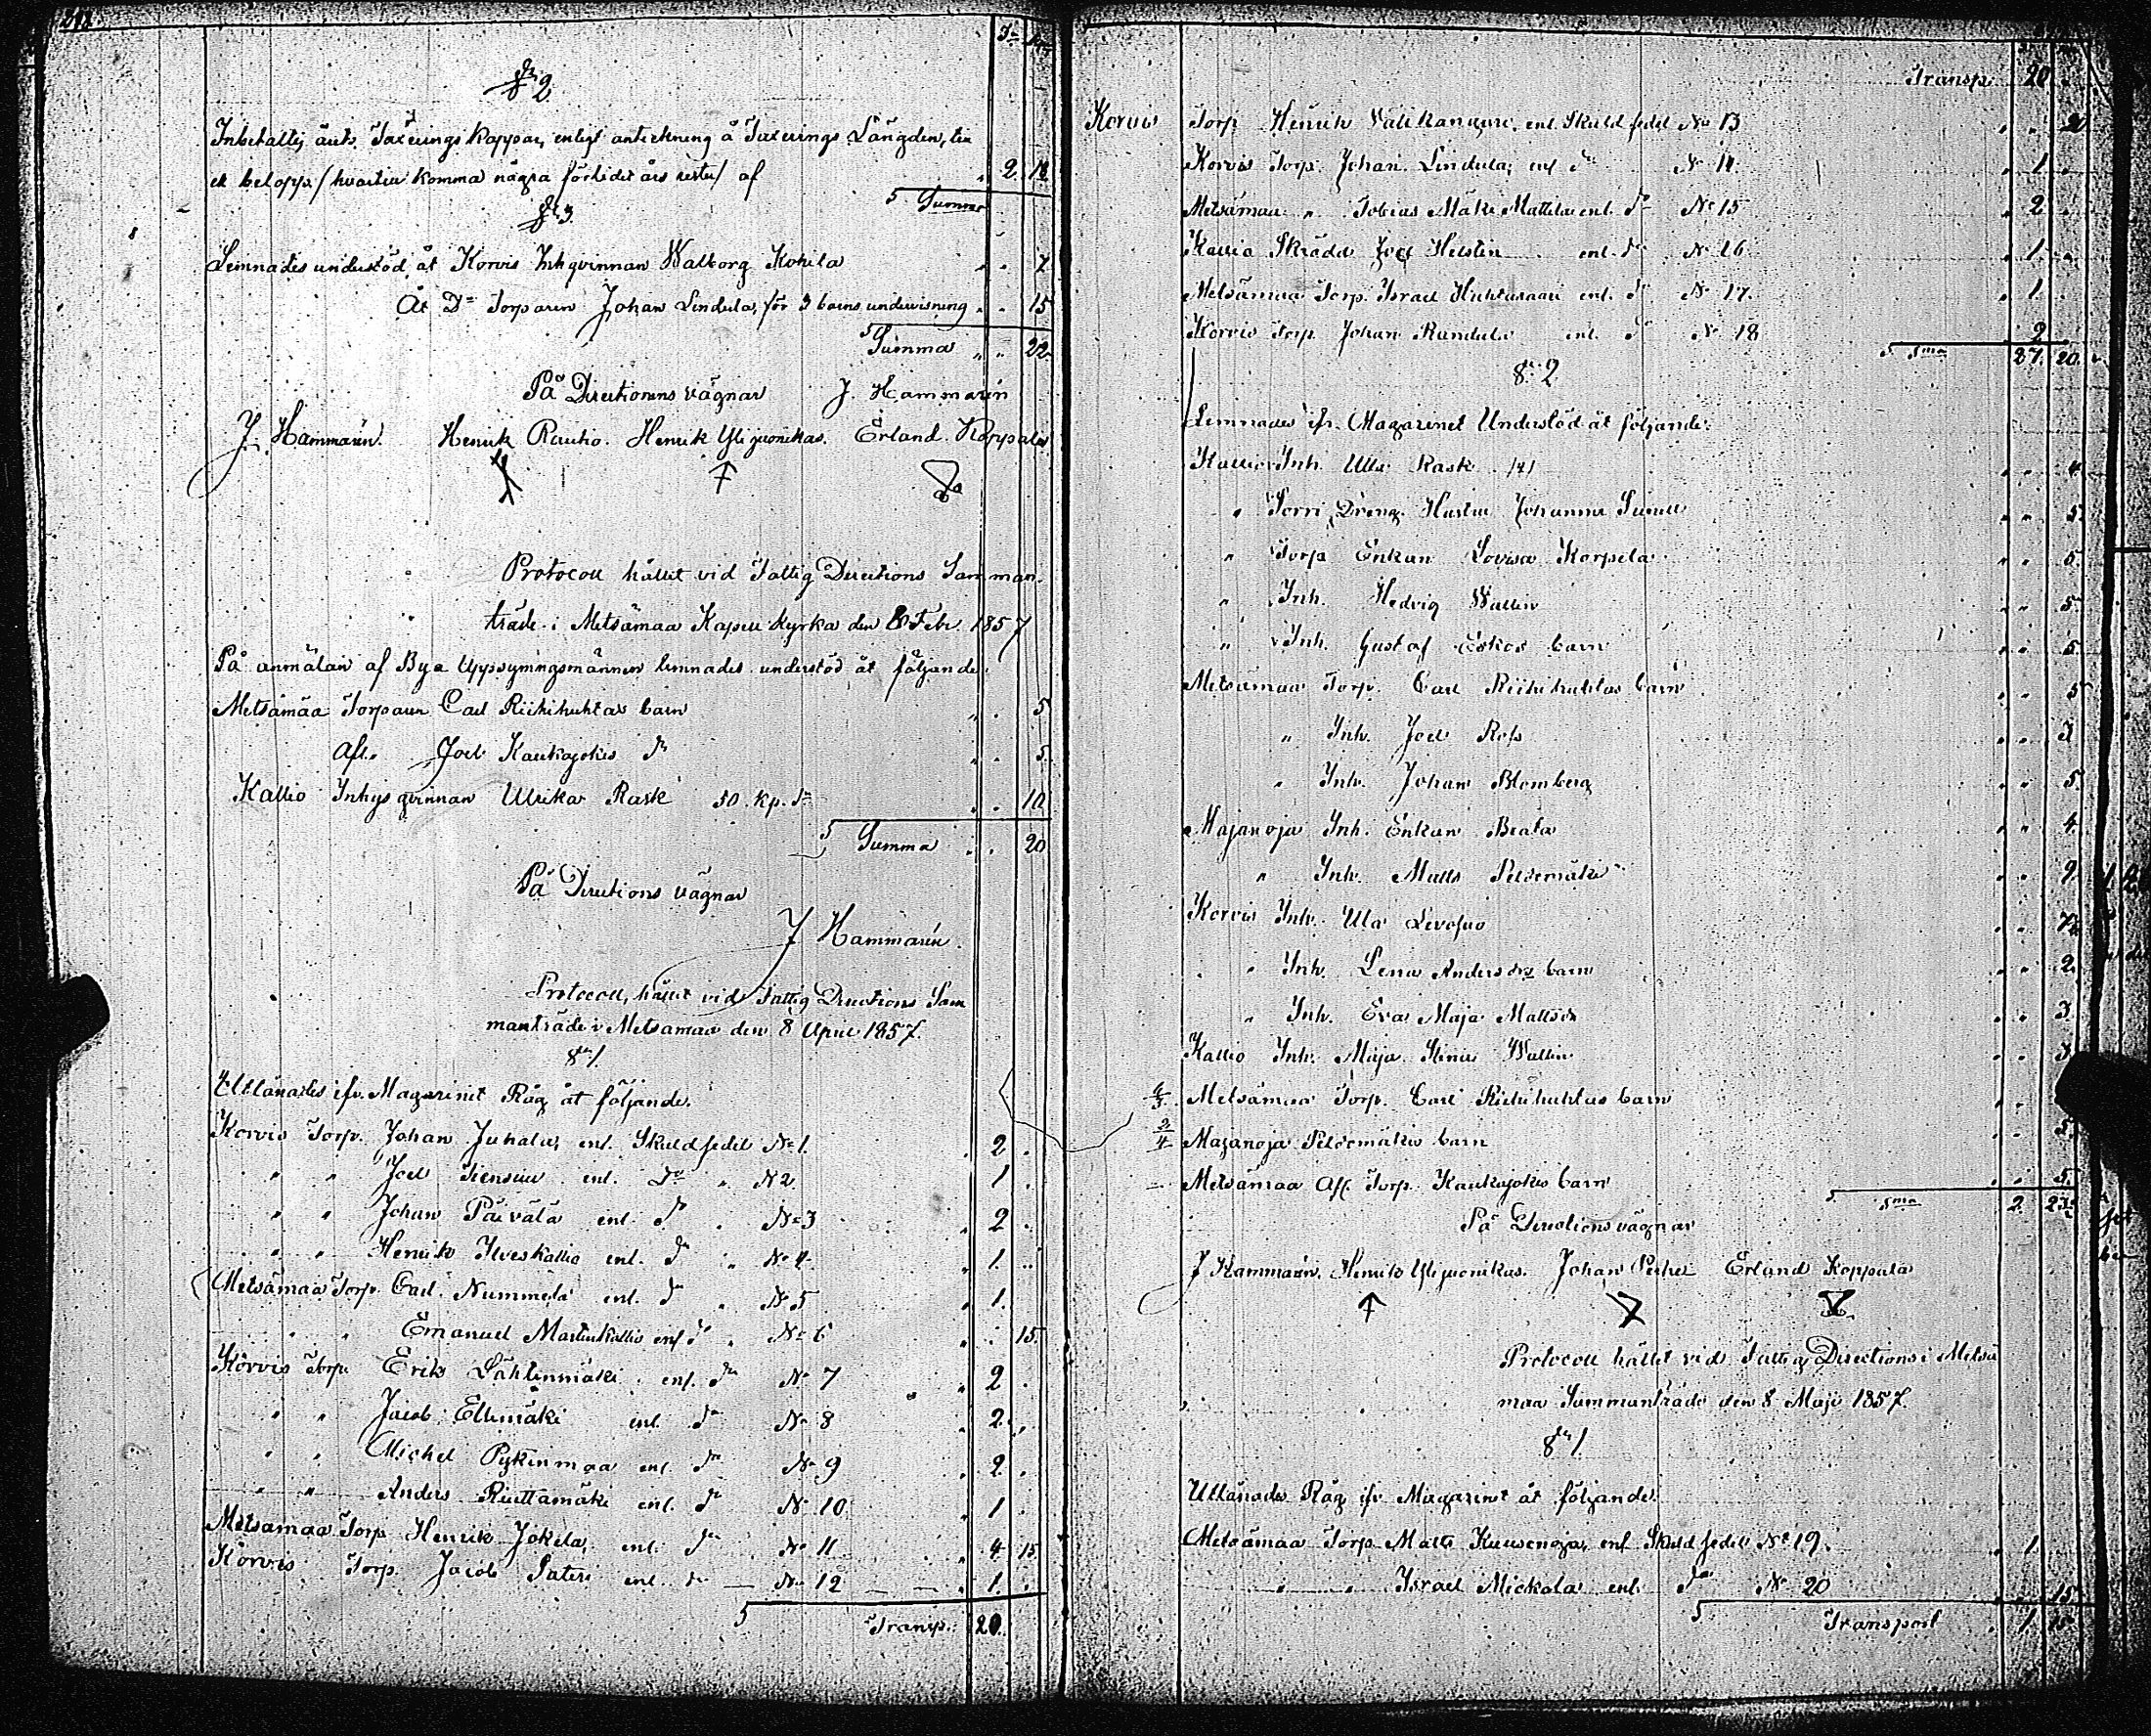 § 2
Inbehaltes årets Taxerings Kappar, enligt anteckning å Taxerings Längden, till
ett belopp / hvartill komma några förledet års rester / af " 2. 12
Summa
§ 3.
Lemnades understöd åt Korvis Inhqvinnan Walborg Kohila " " 7
Åt Do Torparen Johan Lindula, för 3 barns undervisning " " 15
Summa " " 22
På Directionens vägnar J. Hammarén
J. Hammarén. Henrik Rautio. Henrik Ylijuonikas. Erland Koppala
Protocoll hållet vid Fattig Directions Samman-
träde i Metsämaa Kapell Kyrka den 8 Febr. 1857
På anmälan af Bya Uppsyningsmännen lemnades understöd åt följande:
Metsämaa Torparen Carl Riihihuhtas barn " . 5
Afl. Joel Kaukajokis do " . 5.
Kallio Inhysqvinnan Ulrika Rask 50 kp. " . 10
Summa " . 20
På Directions vägnar
J Hammarén.
Protocoll, hållet vid Fattig Directions Sam
manträde i Metsämaa den 8 April 1857.
§ 1.
Utlånades ifr. Magasinet Råg åt följande.
Korvis Torp. Johan Juhala, enl. Skuldsedel No 1. " 2 .
" " Joel Tiensuu enl. do " N 2. 1 .
" " Johan Päivälä enl. do " No 3 " 2 .
" " Henrik Ilveskallio enl. do " No 4. " 1. "
Metsämaa Torp. Carl Nummela enl. do " No 5 " 1.
" " Emanuel Martinkallio enl do " No 6 " . 15.
Korvis Torp. Erik Lähtenmäki enl. do No 7 " 2 .
" " Jacob Ellimäki enl. do No 8 " 2. "
" " Michel Pykinmaa enl. do No 9 " 2 .
" " Anders Riuttamäki enl. do No 10 " 1 .
Metsämaa Torp Henrik Jokela, enl. do No 11 " 4. 15
Korvis Torp. Jacob Sateri enl. do — No 12 — — " 1. .
Transp. 20.
Transp. 20 "
Korvis Torp Henrik enl. Skuldsedel No 13
Korvis Torp. Johan Lindula, enl do No 14. " 1 .
Metsämaa " Tobias Mäki Mattila enl. do No 15 " 2 .
Kallio Skräddar Joel Helsten enl. do No 16 " 1 .
Metsämaa Torp. Israel enl. do No 17. " 1 .
Korvis Torp Johan Randula enl. do No 18 2
Sma 27. 20.
§ 2
Lemnades ifr. Magasinet Understöd åt följande:
Kallio Inh. Ulla Rask " " 4.
" Torri Dräng Hustru Johanna " " 5.
" Torp Enkan Lovisa Korpela " " 5.
" Inh. Hedvig Wallin " " 5
" Inh. Gustaf Eskos barn " " 5
Metsämaa Torp. Carl Riihihuhtas barn " " 5
" Inh. Joel Ross " "
" Inh. Johan Blomberg " " 5.
Majanoja Inh. Enkan Beata " " 4.
" Inh. Matts Peldomäki " " 2.
Korvis Inh. Ula Levosuo " "
" Inh. Lena Anders drs barn " " 2.
" Inh. Eva Maja Mattsdr " " 3
Kallio Inh. Maja Stina Wallin " "
Metsämaa Torp. Carl Riihihuhtas barn
Majanoja Peldomäkis barn " " 5.
Metsämaa Afl. Torp. Kaukajokis barn " " 5.
Sma 2. 23
På Directions vägnar
J Hammarén. Henrik Ylijuonikas. Johan Erland Koppala
Protocoll hållet vid Fattig Directions i Metsä
maa Sammanträde den 8 Maji 1857.
§ 1
Utlånades Råg ifr. Magasinet åt följande.
Metsämaa Torp Matts Kuusenoja, enl Skuldsedel No 19. " 1 .
" " Israel Mickola enl. do No 20 " " 15
Transport " 1 15